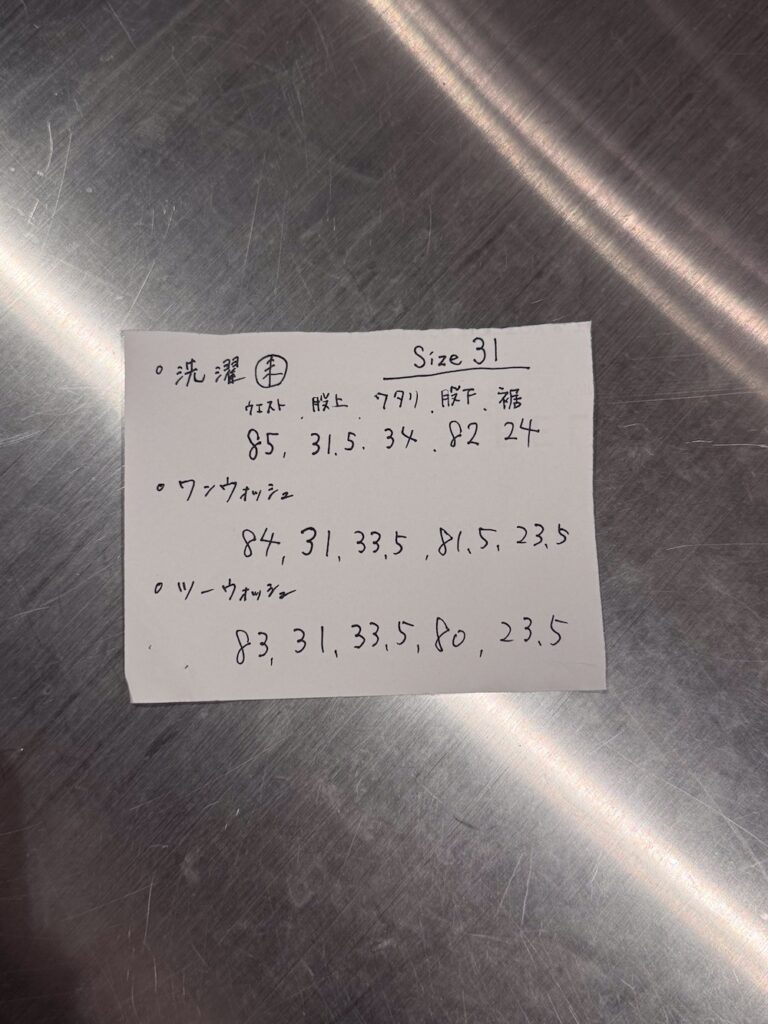 Size 31
• 洗濯 ㊍
ウエスト . 股上 . ワタリ . 股下 . 裾
85, 31.5. 34 . 82 24
• ワンウォッシュ
84, 31, 33.5 , 81.5, 23.5
• ツーウォッシュ
83, 31, 33.5, 80, 23.5